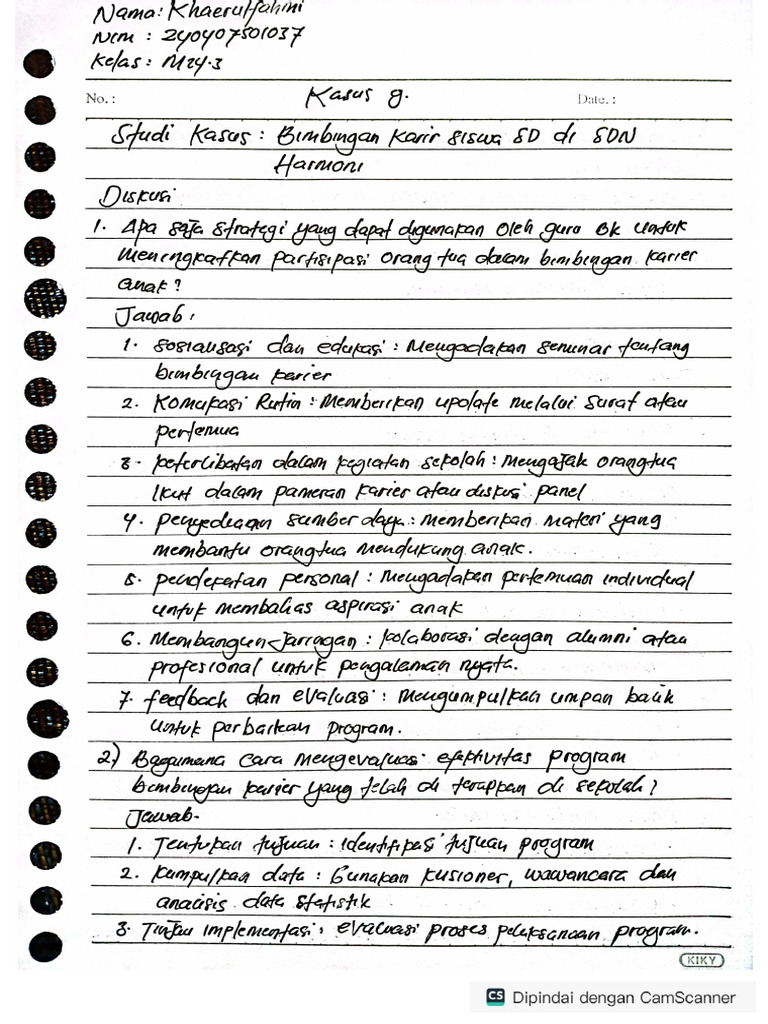 Nama: Khaerulfahmi
Nim : 240407501037
Kelas : M24.3
No. :
Kasus 9.
Date. :
Studi Kasus : Bimbingan Karir siswa SD di SDN
Harmoni
Diskusi
1. Apa saja strategi yang dapat digunakan oleh guru BK untuk
meningkatkan partisipasi orang tua dalam bimbingan karier
anak?
Jawab,
1. sosialisasi dan edukasi : Mengadakan seminar tentang
bimbingan karier
2. Komukasi Rutin : Memberikan update melalui surat atau
pertemua
3. keterlibatan dalam kegiatan sekolah : mengajak orangtua
ikut dalam pameran karier atau diskusi panel
4. penyediaan sumber daya : memberikan materi yang
membantu orangtua mendukung anak.
5. pendekatan personal : mengadakan pertemuan individual
untuk membahas aspirasi anak
6. Membangun Jaringan : kolaborasi dengan alumni atau
profesional untuk pengalaman nyata.
7. feedback dan evaluasi : mengumpulkan umpan balik
untuk perbaikan program.
2.) Bagaimana cara mengevaluasi efektivitas program
bimbingan karier yang telah di terapkan di sekolah?
Jawab.
1. Tentukan tujuan : identifikasi tujuan program
2. kumpulkan data : Gunakan kusioner, wawancara dan
analisis data statistik
3. Tinjau implementasi : evaluasi proses pelaksanaan program.
KIKY
CS Dipindai dengan CamScanner